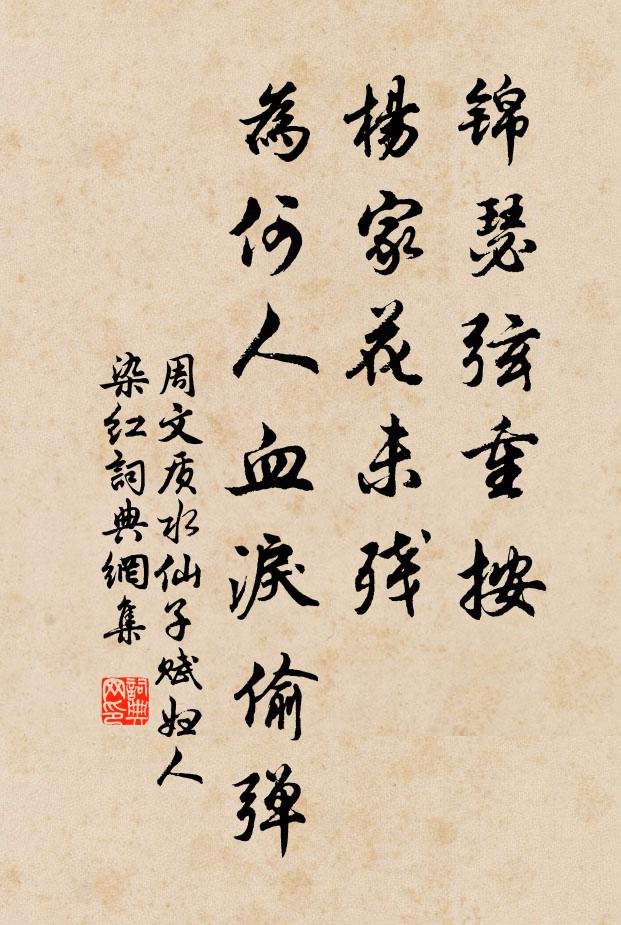 锦瑟弦重按
楊家花未残
為何人血淚偷弹
周文质水仙子赋妇人
染红詞典網集
詞典网印